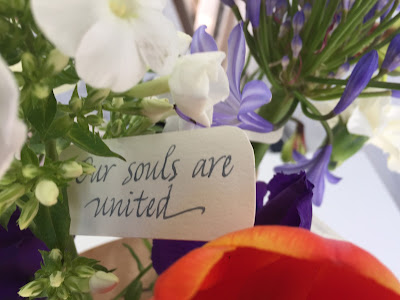 Our souls are
united